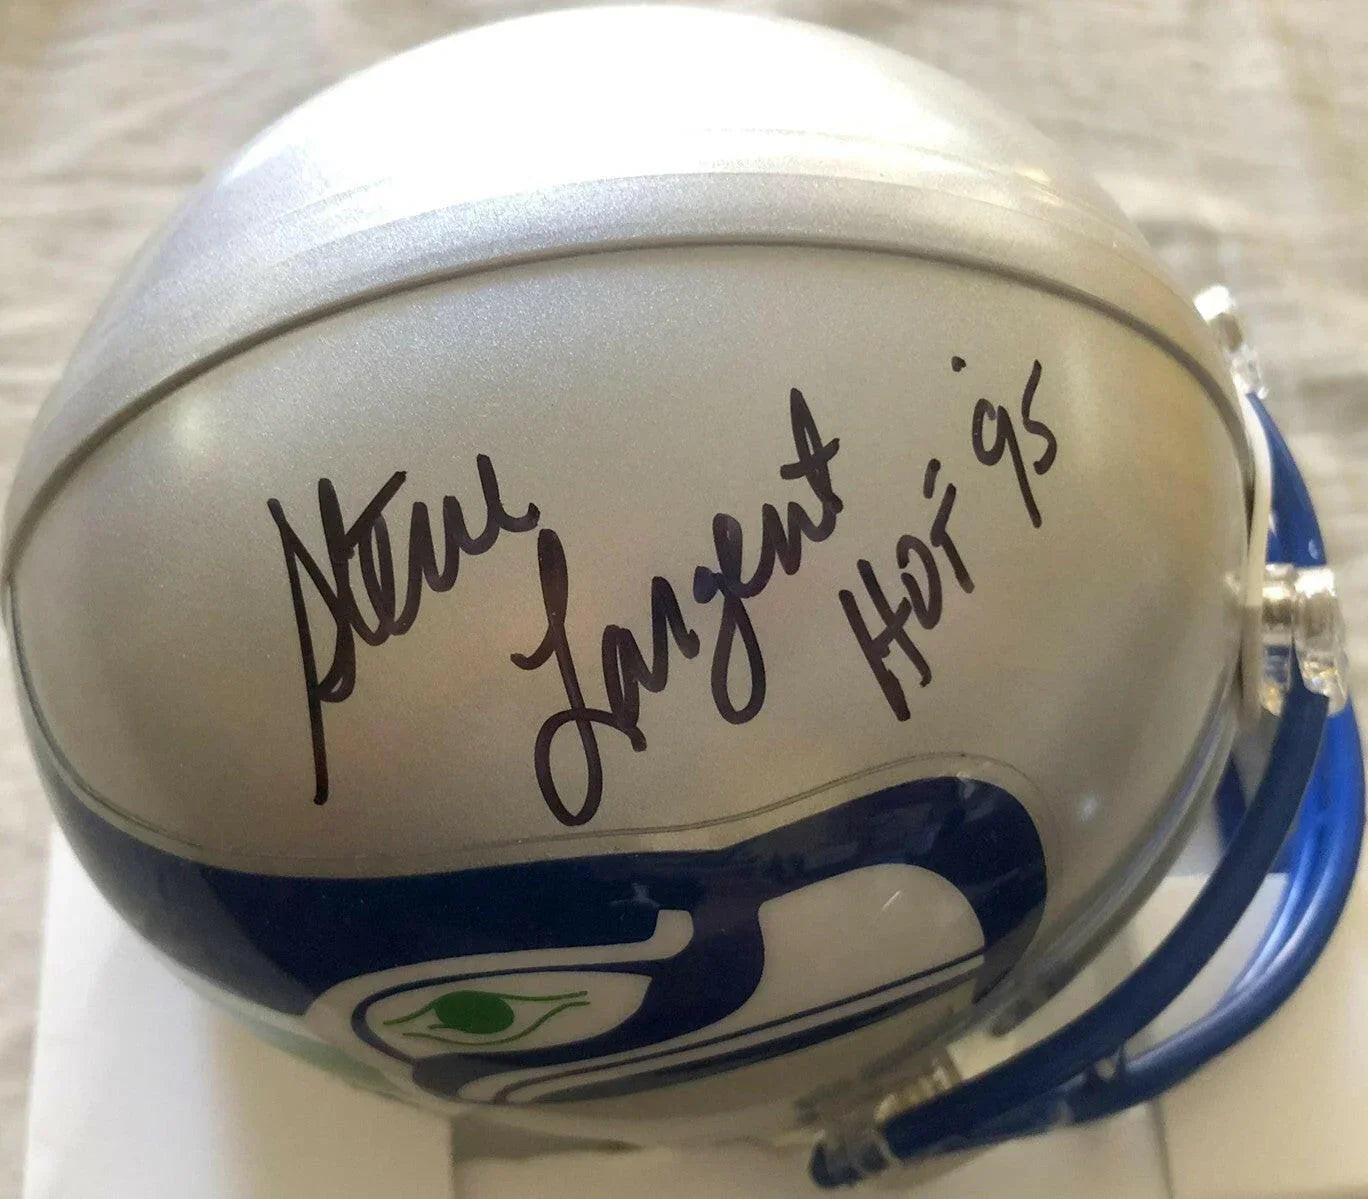 Steve
Largent
HOF '95